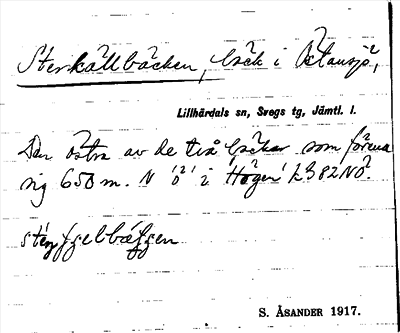 Sterkällbäcken, bäck i Östansjö,
Lillhärdals sn, Svegs tg, Jämtl. l.
Den östra av de två bäckar som förena
sig 650 m. N 'ö' i 'Högen' k382NÖ.
S. ÅSANDER 1917.